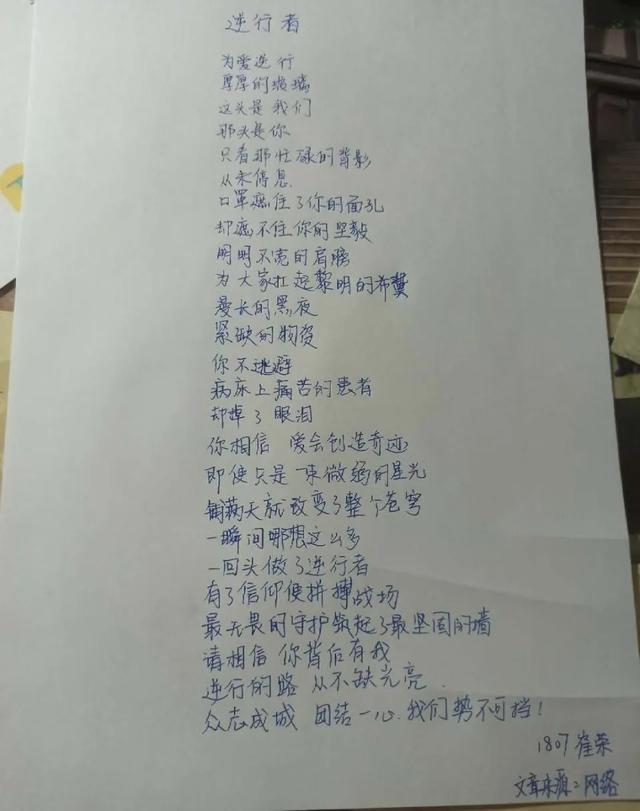 逆行者
为爱逆行
厚厚的玻璃
这头是我们
那头是你
只看那忙碌的背影
从未停息.
口罩遮住了你的面孔
却遮不住你的坚毅
明明不宽的肩膀
为大家扛起黎明的希冀
漫长的黑夜
紧缺的物资
你不逃避
病床上痛苦的患者
却掉了眼泪
你相信 爱会创造奇迹
即使只是一束微弱的星光
铺满天就改变了整个苍穹
一瞬间哪想这么多
一回头做了逆行者
有了信仰便拼搏战场
最无畏的守护筑起了最坚固的墙
请相信 你背后有我
逆行的路 从不缺光亮.
众志成城 团结一心.我们势不可挡!
1807 崔荣
文章来源:网络